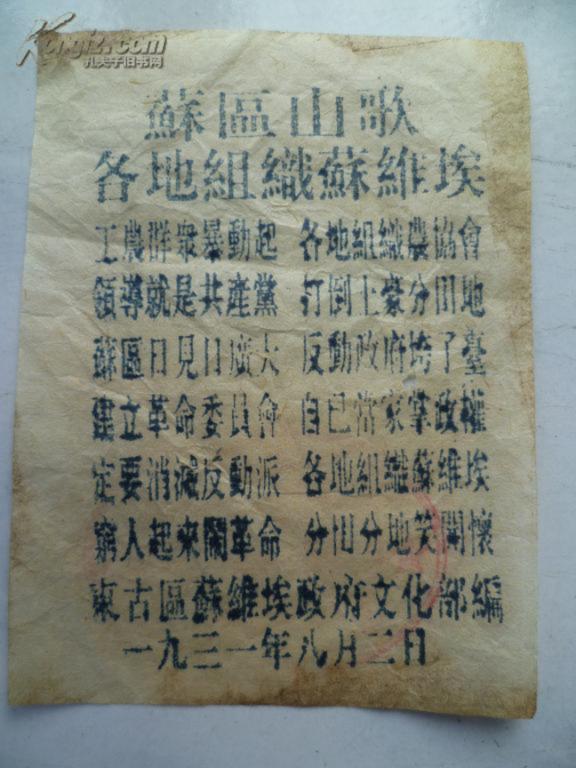 Kongfz.com
孔夫子旧书网
蘇區山歌
各地組織蘇維埃
工農群衆暴動起 各地組織農協會
領導就是共產黨 打倒土豪分田地
蘇區日見日廣大 反動政府垮了臺
建立革命委員會 自己當家掌政權
定要消滅反動派 各地組織蘇維埃
窮人起來鬧革命 分田分地笑開懷
東古區蘇維埃政府文化部編
一九三一年八月二日